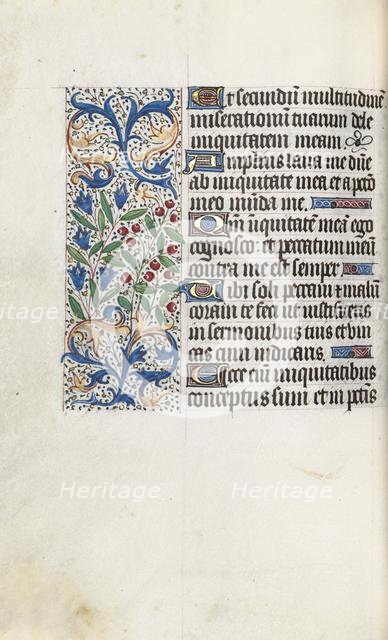 Et secundū multitudinē
miserationū tuarum dele
iniquitatem meam
Amplius laua me dn̄e
ab iniquitate mea et a pctō
meo munda me.
Qm̄ iniquitatē meā ego
cognosco: et peccatum meū
contra me est semper
Tibi soli peccaui et malū
coram te feci ut iustificeris
in sermonibus tuis et vin
cas cum iudicaris.
Ecce enī iniquitatibus
conceptus sum et in pctīs
Heritage
Heritage
Heritage
Heritage